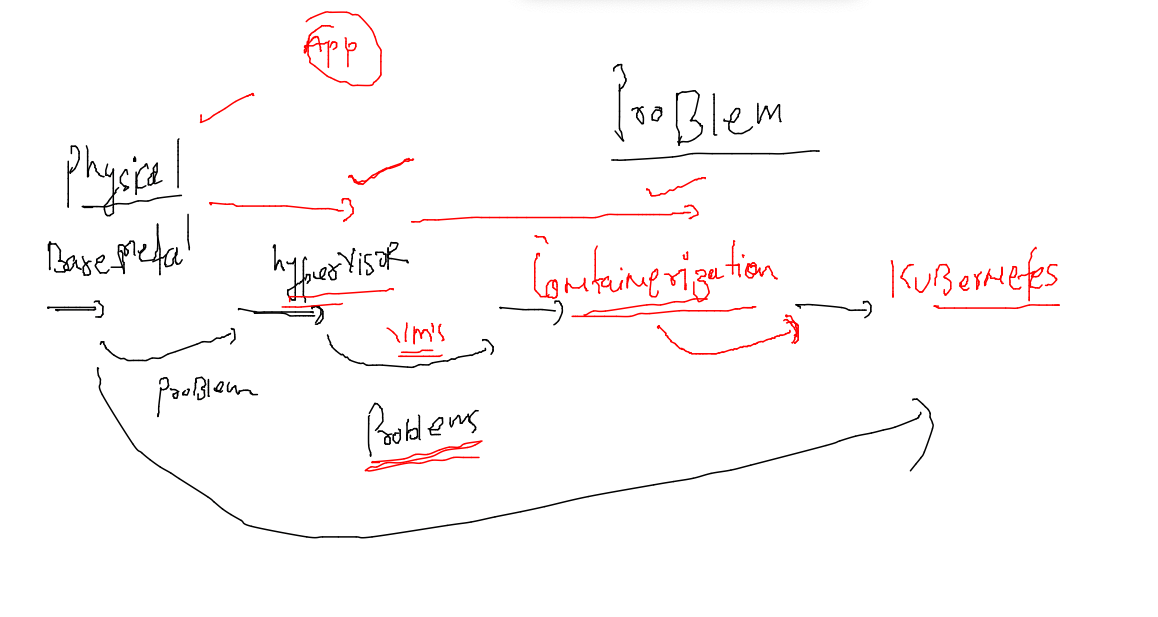 App
ProBlem
Physical
Baremetal
hypervisor
Containerization
KuBernetes
VM's
ProBlem
Problems